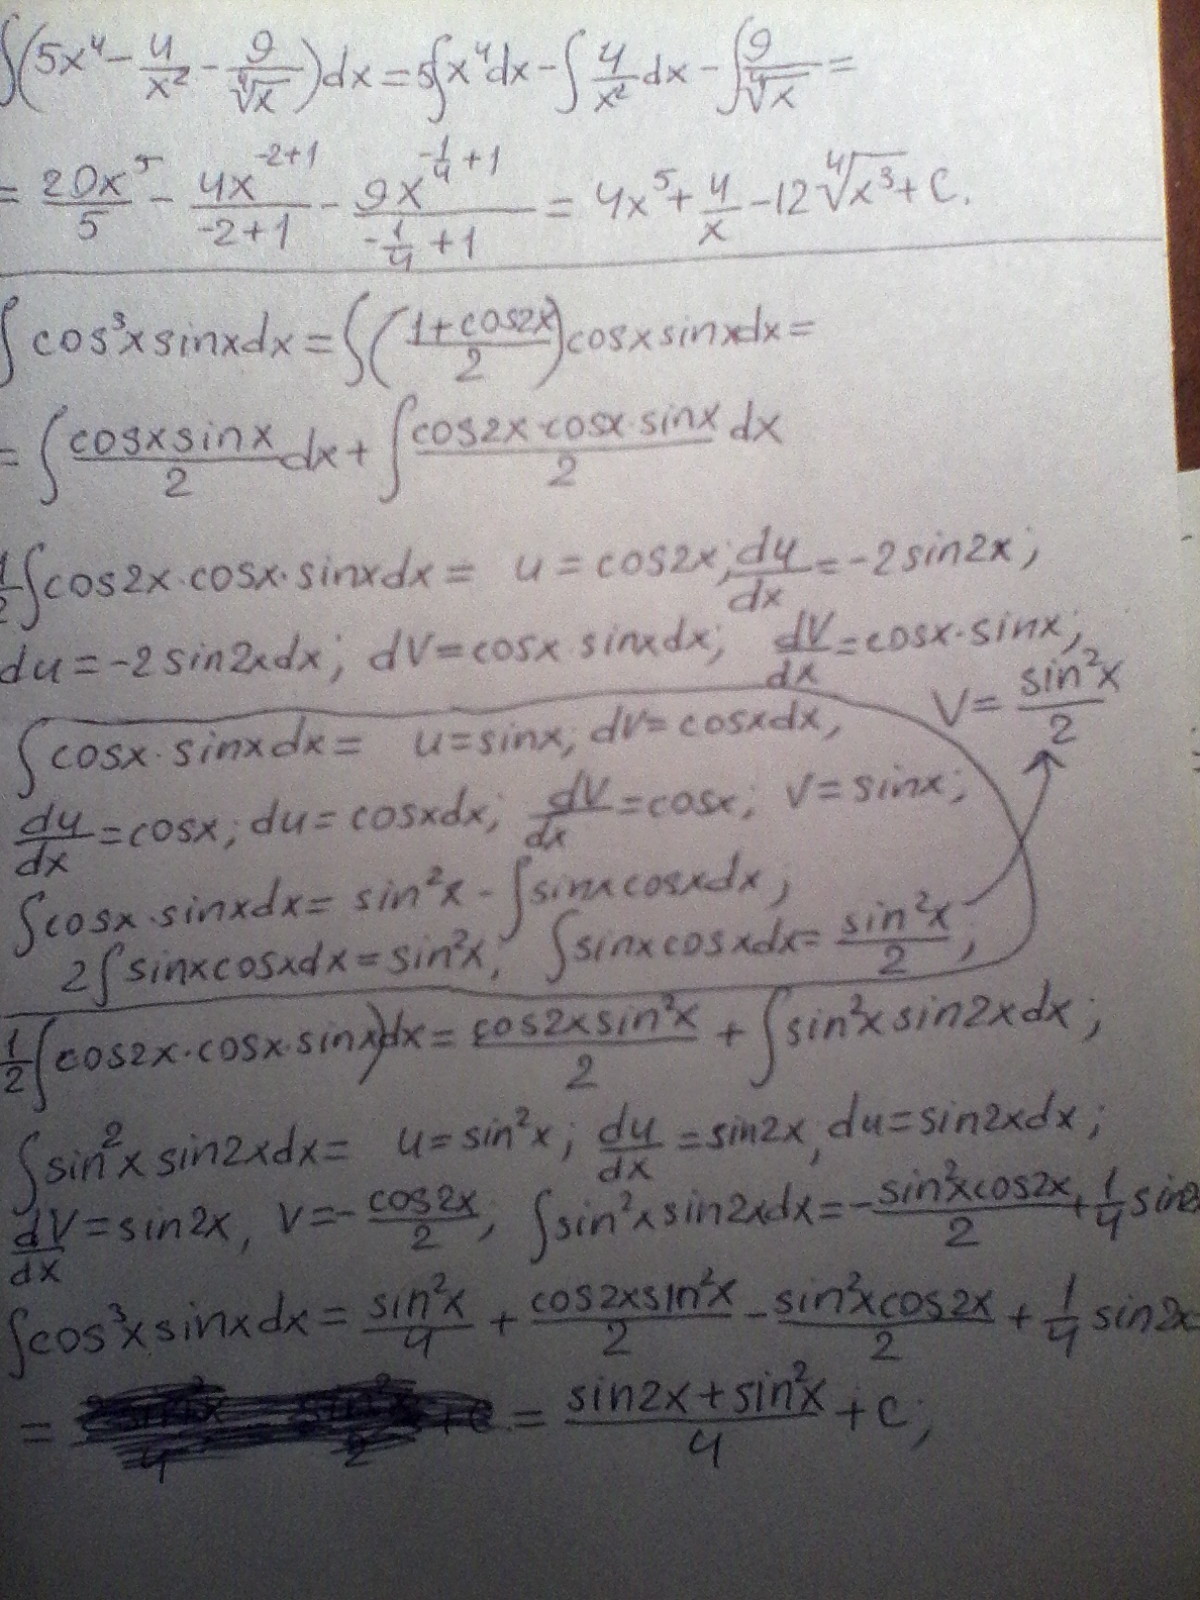 ∫(5x⁴ - 4/x² - 9/⁴√x)dx = 5∫x⁴dx - ∫4/x² dx - ∫9/⁴√x =
= 20x⁵/5 - 4x^(-2+1)/(-2+1) - 9x^(-1/4+1)/(-1/4+1) = 4x⁵ + 4/x - 12 ⁴√x³ + C.
∫cos³x sinx dx = ∫((1+cos2x)/2) cosx sinx dx =
= ∫(cosx sinx)/2 dx + ∫(cos2x·cosx·sinx)/2 dx
1/2 ∫cos2x·cosx·sinx dx = u = cos2x; du/dx = -2sin2x;
du = -2sin2xdx; dV = cosx sinxdx; dV/dx = cosx·sinx;
V = sin²x/2
∫cosx·sinxdx = u = sinx; dV = cosxdx,
du/dx = cosx; du = cosxdx; dV/dx = cosx; V = sinx;
∫cosx·sinxdx = sin²x - ∫sinxcosxdx;
2∫sinxcosxdx = sin²x; ∫sinxcosxdx = sin²x/2;
1/2 ∫cos2x·cosx·sinx)dx = cos2xsin²x/2 + ∫sin²x sin2xdx;
∫sin²x sin2xdx = u = sin²x; du/dx = sin2x, du = sin2xdx;
dV/dx = sin2x, V = -cos2x/2; ∫sin²x sin2xdx = -sin²xcos2x/2 + 1/4 sin2x
∫cos³x sinxdx = sin²x/4 + cos2xsin²x/2 - sin²xcos2x/2 + 1/4 sin2x
= = (sin2x + sin²x)/4 + C;